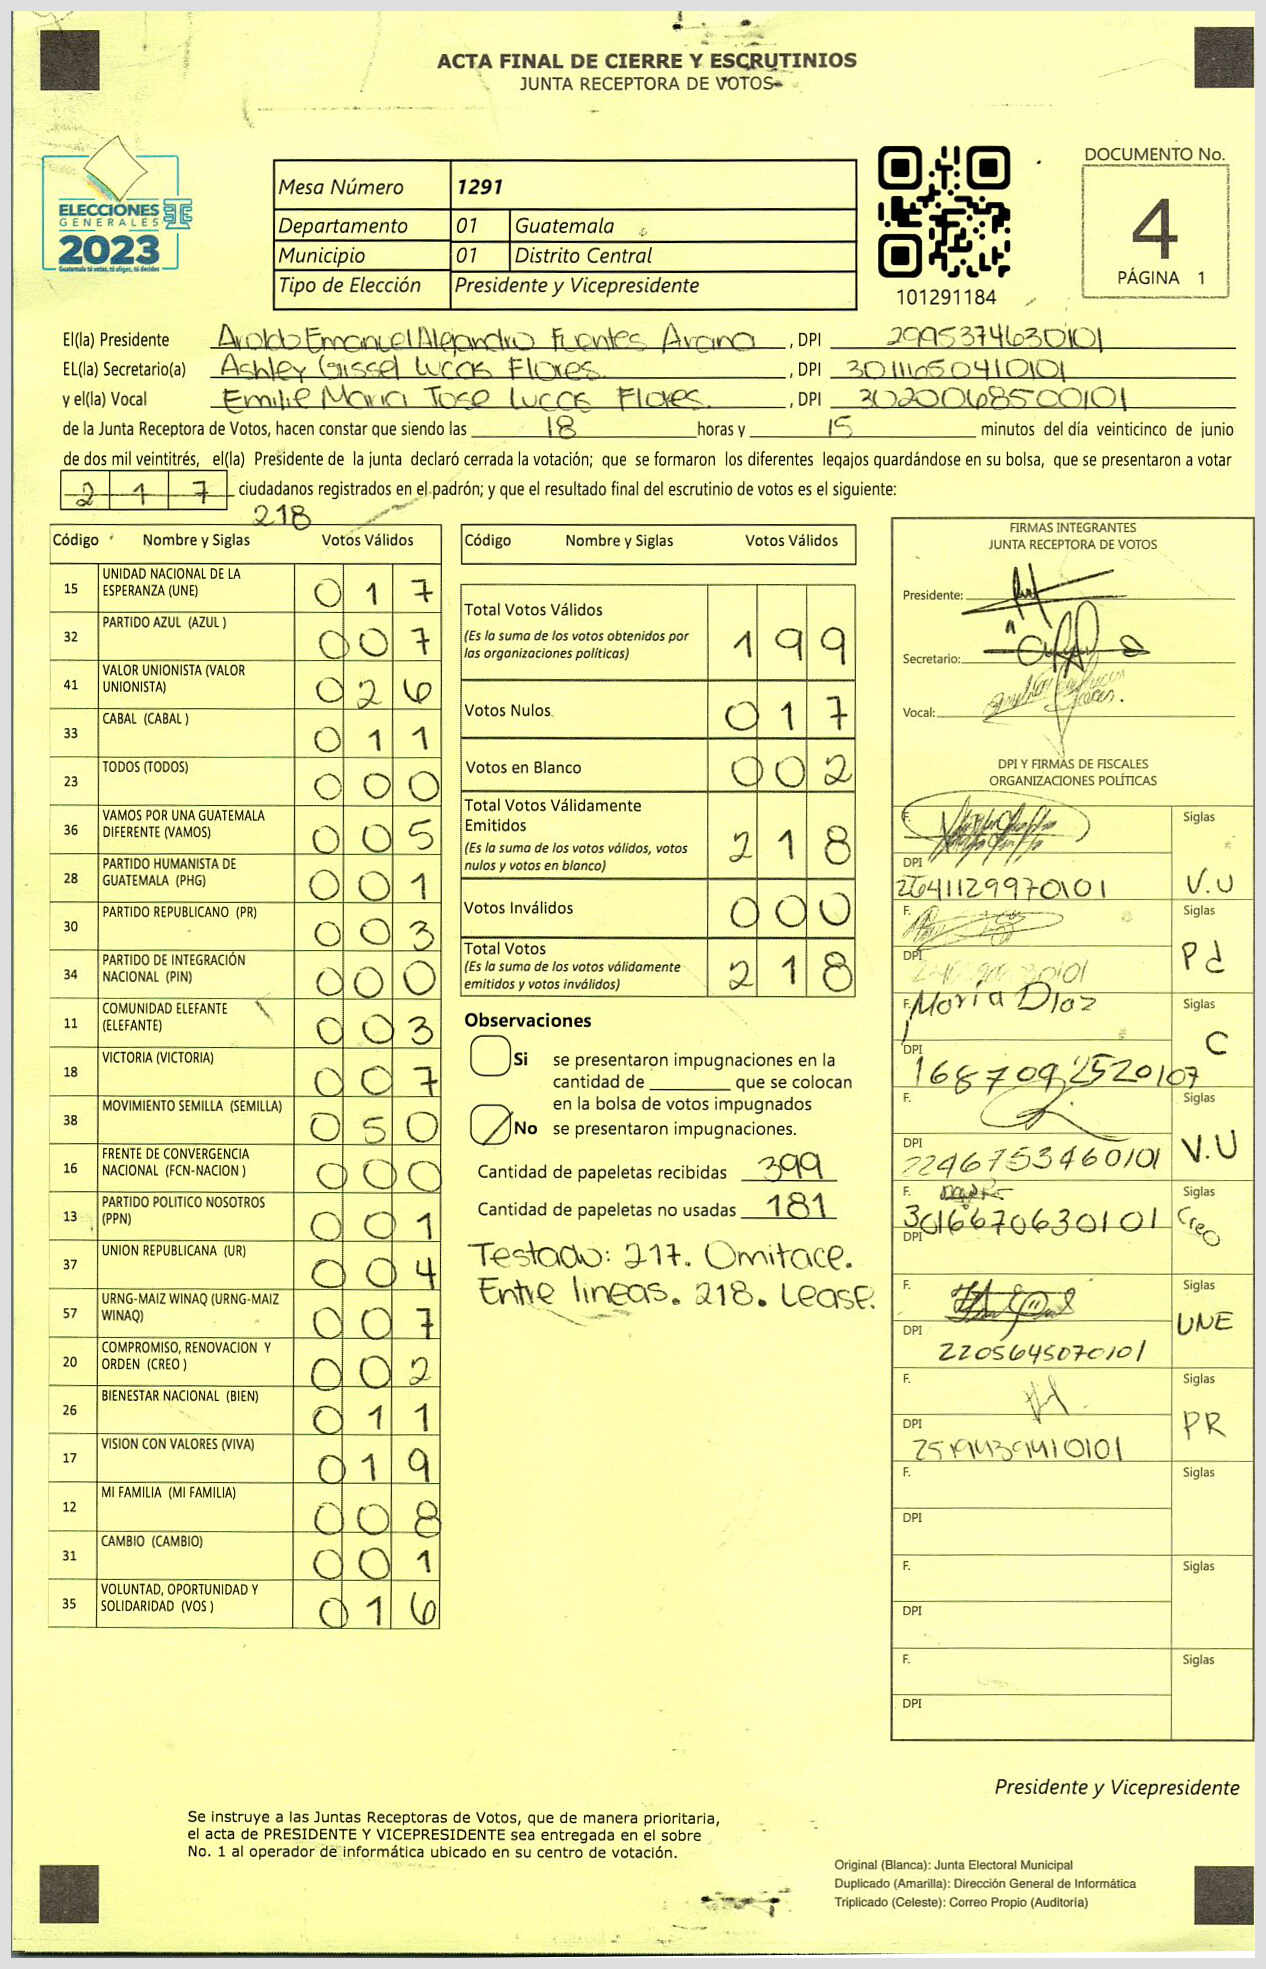 ACTA FINAL DE CIERRE Y ESCRUTINIOS
JUNTA RECEPTORA DE VOTOS
ELECCIONES
GENERALES
2023
Guatemala tú votas, tú eliges, tú decides
Mesa Número 1291
Departamento 01 Guatemala
Municipio 01 Distrito Central
Tipo de Elección Presidente y Vicepresidente
101291184
DOCUMENTO No.
4
PÁGINA 1
El(la) Presidente Aroldo Emanuel Alejandro Fuentes Arana, DPI 2995374630101
EL(la) Secretario(a) Ashley Gissel Lucas Flores., DPI 3011650410101
y el(la) Vocal Emilie Maria Jose Lucas Flores., DPI 3020068500101
de la Junta Receptora de Votos, hacen constar que siendo las 18 horas y 15 minutos del día veinticinco de junio
de dos mil veintitrés, el(la) Presidente de la junta declaró cerrada la votación; que se formaron los diferentes legajos guardándose en su bolsa, que se presentaron a votar
217 ciudadanos registrados en el padrón; y que el resultado final del escrutinio de votos es el siguiente:
218
Código Nombre y Siglas Votos Válidos
15 UNIDAD NACIONAL DE LA ESPERANZA (UNE) 017
32 PARTIDO AZUL (AZUL ) 007
41 VALOR UNIONISTA (VALOR UNIONISTA) 026
33 CABAL (CABAL ) 011
23 TODOS (TODOS) 000
36 VAMOS POR UNA GUATEMALA DIFERENTE (VAMOS) 005
28 PARTIDO HUMANISTA DE GUATEMALA (PHG) 001
30 PARTIDO REPUBLICANO (PR) 003
34 PARTIDO DE INTEGRACIÓN NACIONAL (PIN) 000
11 COMUNIDAD ELEFANTE (ELEFANTE) 003
18 VICTORIA (VICTORIA) 007
38 MOVIMIENTO SEMILLA (SEMILLA) 050
16 FRENTE DE CONVERGENCIA NACIONAL (FCN-NACION ) 000
13 PARTIDO POLITICO NOSOTROS (PPN) 001
37 UNION REPUBLICANA (UR) 004
57 URNG-MAIZ WINAQ (URNG-MAIZ WINAQ) 007
20 COMPROMISO, RENOVACION Y ORDEN (CREO ) 002
26 BIENESTAR NACIONAL (BIEN) 011
17 VISION CON VALORES (VIVA) 019
12 MI FAMILIA (MI FAMILIA) 008
31 CAMBIO (CAMBIO) 001
35 VOLUNTAD, OPORTUNIDAD Y SOLIDARIDAD (VOS ) 016
Código Nombre y Siglas Votos Válidos
Total Votos Válidos 199
(Es la suma de los votos obtenidos por
las organizaciones políticas)
Votos Nulos 017
Votos en Blanco 002
Total Votos Válidamente
Emitidos 218
(Es la suma de los votos válidos, votos
nulos y votos en blanco)
Votos Inválidos 000
Total Votos 218
(Es la suma de los votos válidamente
emitidos y votos inválidos)
Observaciones
Si se presentaron impugnaciones en la
cantidad de ________ que se colocan
en la bolsa de votos impugnados
No se presentaron impugnaciones.
Cantidad de papeletas recibidas 399
Cantidad de papeletas no usadas 181
Testado: 217. Omitace.
Entre lineas. 218. Lease.
FIRMAS INTEGRANTES
JUNTA RECEPTORA DE VOTOS
Presidente:
Secretario:
Vocal:
DPI Y FIRMAS DE FISCALES
ORGANIZACIONES POLÍTICAS
F. Siglas
DPI 2641129970101 V.U
F. Siglas
DPI Pd
F. Maria Diaz Siglas
DPI 1687092520107 C
F. Siglas
DPI 2246753460101 V.U
F. Siglas
DPI 3016670630101 Creo
F. Siglas
DPI 2205645070101 UNE
F. Siglas
DPI PR
F. Siglas
DPI
F. Siglas
DPI
F. Siglas
DPI
Presidente y Vicepresidente
Se instruye a las Juntas Receptoras de Votos, que de manera prioritaria,
el acta de PRESIDENTE Y VICEPRESIDENTE sea entregada en el sobre
No. 1 al operador de informática ubicado en su centro de votación.
Original (Blanca): Junta Electoral Municipal
Duplicado (Amarilla): Dirección General de Informática
Triplicado (Celeste): Correo Propio (Auditoría)